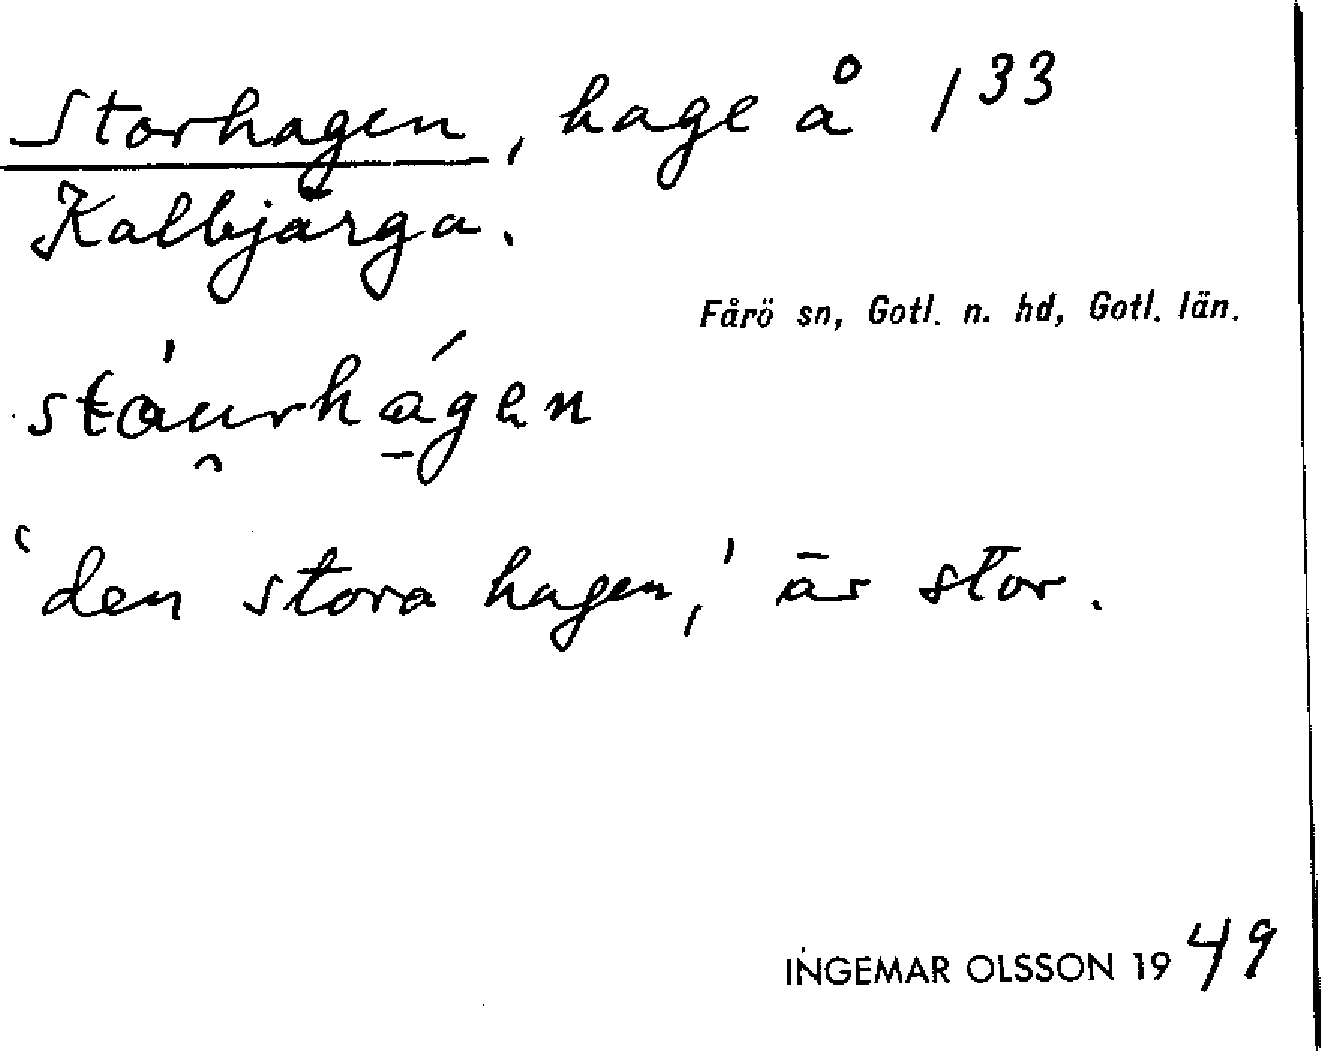 Storhagen, hage å 133
Kalbjärga.
Fårö sn, Gotl. n. hd, Gotl. län.
stáu̯rhá̱gen
'den stora hagen,' är stor.
INGEMAR OLSSON 1949